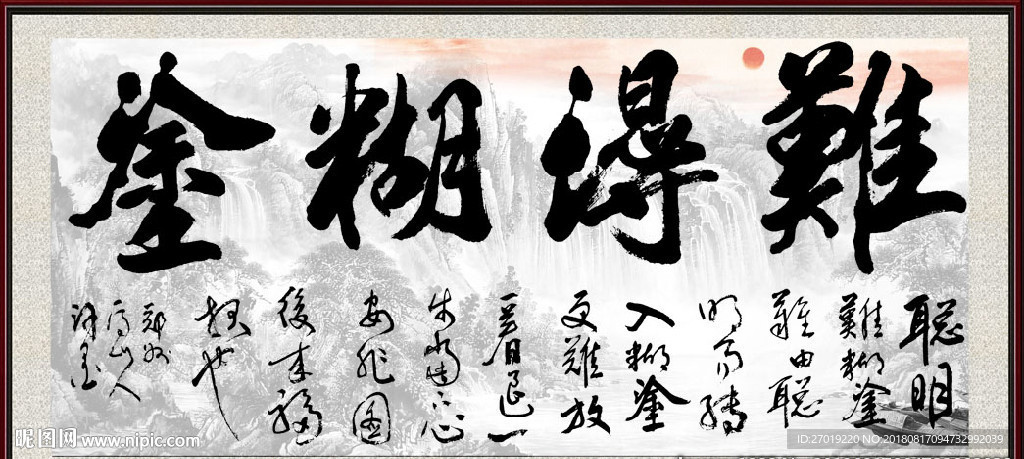 難得糊塗
聰明
難糊塗
難由聰
明而轉
入糊塗
更難放
一着退一
步當下心
安非圖
後來福
報也
昵图网 www.nipic.com
ID:27019220 NO:20180817094732992039